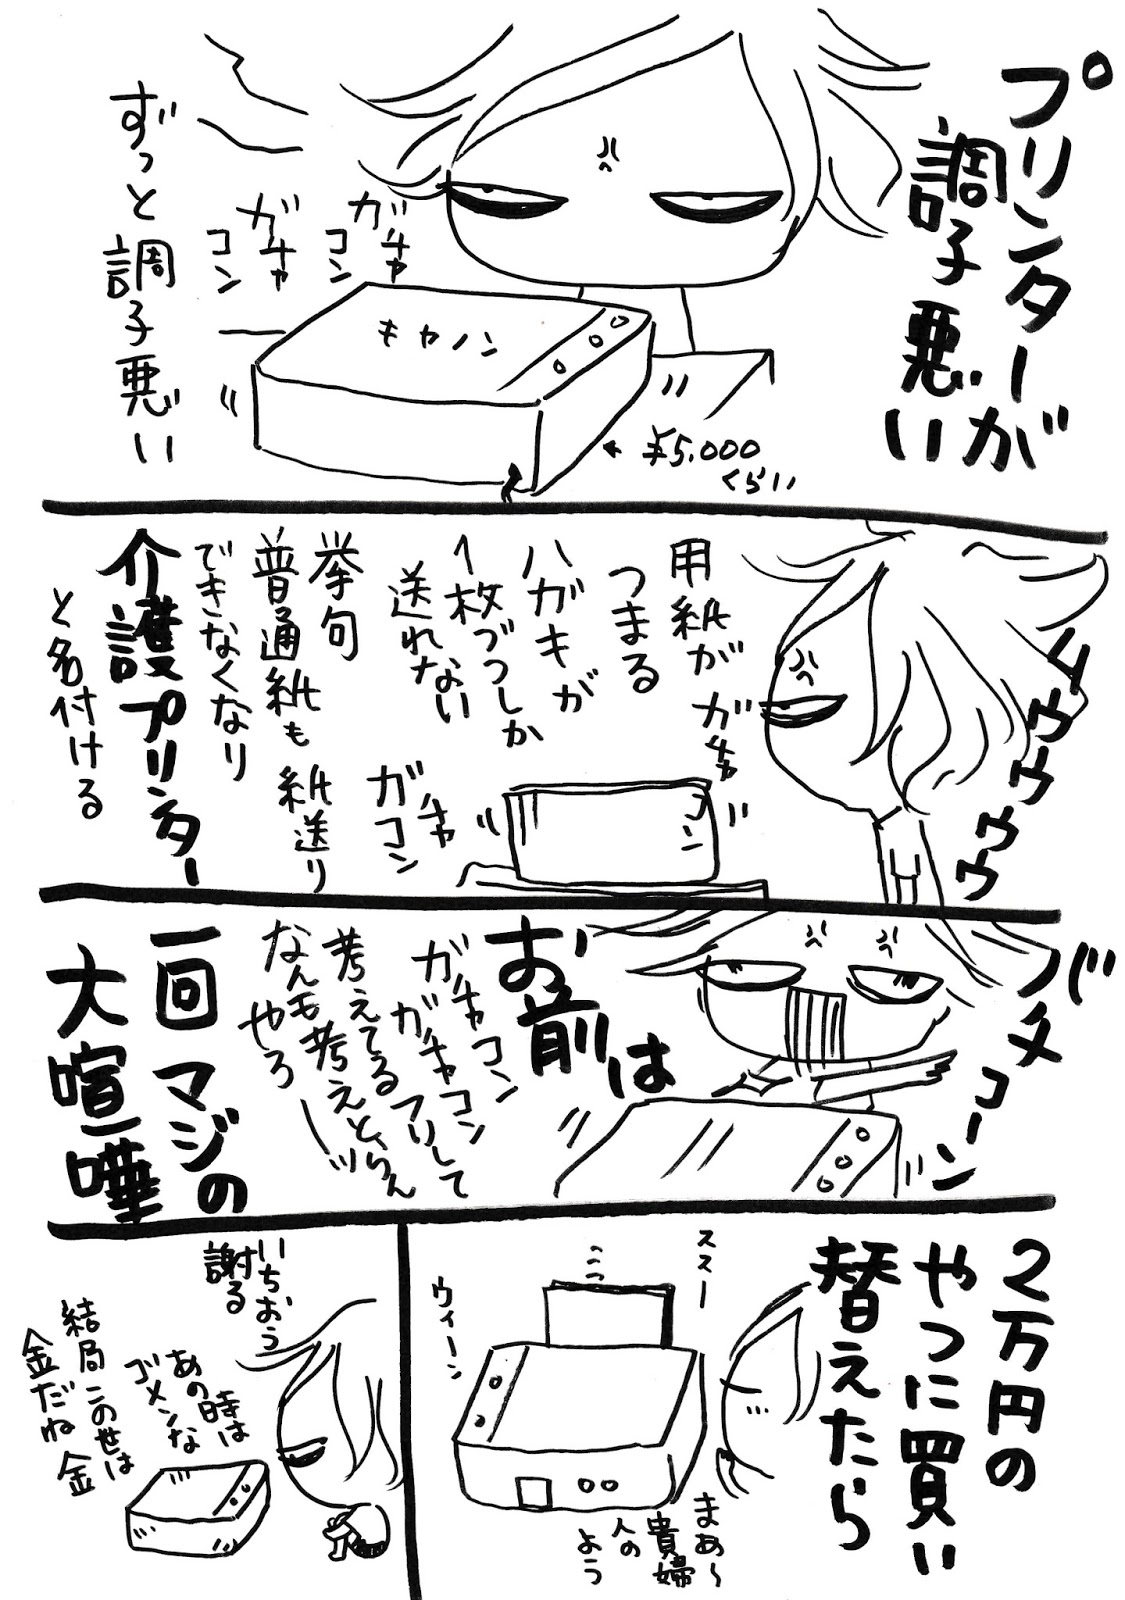 プリンターが
調子悪い
ガチャ
コン
ガチャ
コン
キヤノン
¥5.000
くらい
ずっと調子悪い
ムウウウウウ
用紙が
つまる
ハガキが
1枚づつしか
送れない
ガチャ
コン
ガチャ
ガコン
挙句
普通紙も紙送り
できなくなり
介護プリンター
と名付ける
バメコーン
お前は
ガチャコン
ガチャコン
考えてるフリして
なんも考えとらん
やろーッ
一回マジの
大喧嘩
2万円の
やつに買い
替えたら
ススー
ウィーン
まあ〜
貴婦
人の
よう
いちおう
謝る
あの時は
ゴメンな
結局この世は
金だね 金